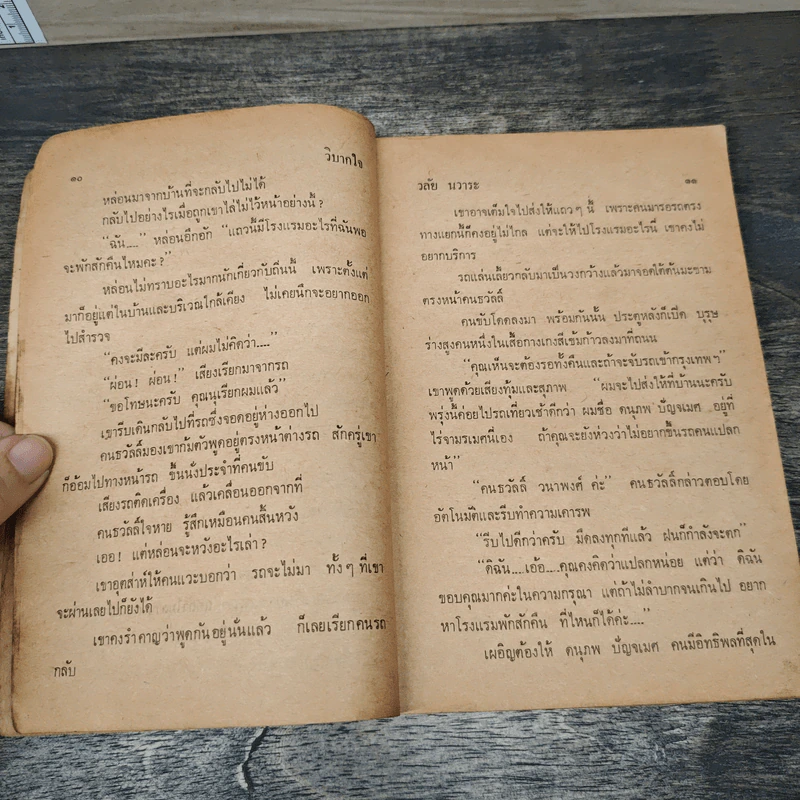 ๑๐
วิบากใจ
หล่อนมาจากบ้านที่จะกลับไปไม่ได้
กลับไปอย่างไรเมื่อถูกเขาไล่ไม่ไว้หน้าอย่างนี้?
“ฉัน.....” หล่อนอึกอัก “แถวนี้มีโรงแรมอะไรที่ฉันพอ
จะพักสักคืนไหมคะ?”
หล่อนไม่ทราบอะไรมากนักเกี่ยวกับถิ่นนี้ เพราะตั้งแต่
มาก็อยู่แต่ในบ้านและบริเวณใกล้เคียง ไม่เคยนึกจะอยากออก
ไปสำรวจ
“คงจะมีละครับ แต่ผมไม่คิดว่า.....”
“ผ่อน! ผ่อน!” เสียงเรียกมาจากรถ
“ขอโทษนะครับ คุณนุเรียกผมแล้ว”
เขารีบเดินกลับไปที่รถซึ่งจอดอยู่ห่างออกไป
คนธวัลลิ์มองเขาก้มตัวพูดอยู่ตรงหน้าต่างรถ สักครู่เขา
ก็อ้อมไปทางหน้ารถ ขึ้นนั่งประจำที่คนขับ
เสียงรถติดเครื่อง แล้วเคลื่อนออกจากที่
คนธวัลลิ์ใจหาย รู้สึกเหมือนคนสิ้นหวัง
เออ! แต่หล่อนจะหวังอะไรเล่า?
เขาอุตส่าห์ให้คนแวะบอกว่า รถจะไม่มา ทั้งๆ ที่เขา
จะผ่านเลยไปก็ยังได้
เขาคงรำคาญว่าพูดกันอยู่นั่นแล้ว ก็เลยเรียกคนรถ
กลับ
วลัย นวาระ
๑๑
เขาอาจเต็มใจไปส่งให้แถวๆ นี้ เพราะคนมารอรถตรง
ทางแยกนี้ก็คงอยู่ไม่ไกล แต่จะให้ไปโรงแรมอะไรนี่ เขาคงไม่
อยากบริการ
รถแล่นเลี้ยวกลับมาเป็นวงกว้างแล้วมาจอดใต้ต้นมะขาม
ตรงหน้าคนธวัลลิ์
คนขับโดดลงมา พร้อมกันนั้น ประตูหลังก็เปิด บุรุษ
ร่างสูงคนหนึ่งในเสื้อกางเกงสีเข้มก้าวลงมาที่ถนน
“คุณเห็นจะต้องรอทั้งคืนและถ้าจะจับรถเข้ากรุงเทพฯ”
เขาพูดด้วยเสียงทุ้มและสุภาพ “ผมจะไปส่งให้ที่บ้านนะครับ
พรุ่งนี้ค่อยไปรถเที่ยวเช้าดีกว่า ผมชื่อ ดนุภพ ปัญจเมศ อยู่ที่
ไร่จามรเมศนี่เอง ถ้าคุณจะยังห่วงว่าไม่อยากขึ้นรถคนแปลก
หน้า”
“คนธวัลลิ์ วนาพงศ์ ค่ะ” คนธวัลลิ์กล่าวตอบโดย
อัตโนมัติและรีบทำความเคารพ
“รีบไปดีกว่าครับ มืดลงทุกทีแล้ว ฝนก็กำลังจะตก”
“ดิฉัน.....เอ้อ.....คุณคงคิดว่าแปลกหน่อย แต่ว่า ดิฉัน
ขอบคุณมากค่ะในความกรุณา แต่ถ้าไม่ลำบากจนเกินไป อยาก
หาโรงแรมพักสักคืน ที่ไหนก็ได้ค่ะ.....”
เผอิญต้องให้ ดนุภพ ปัญจเมศ คนมีอิทธิพลที่สุดใน